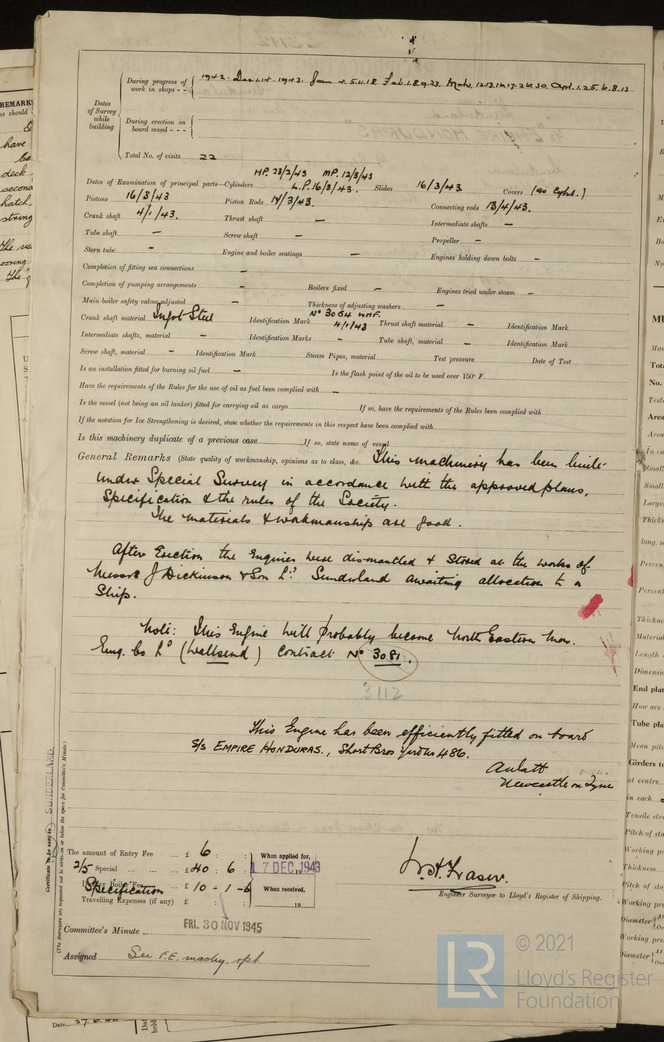 During progress of work in shops - - 1942. Dec. 14. 1943. Jan 4. 5. 11. 18. Feb. 1. 8. 9. 23. Mch. 12. 13. 16. 17. 26. 30. Apl. 1. 2. 5. 6. 8. 13
Dates of Survey while building
During erection on board vessel - - -
Total No. of visits 22
H.P. 23/2/43 M.P. 12/3/43
Dates of Examination of principal parts—Cylinders L.P. 16/3/43. Slides 16/3/43 Covers (as Cyls.)
Pistons 16/3/43 Piston Rods 14/3/43. Connecting rods 13/4/43.
Crank shaft 4/1/43. Thrust shaft — Intermediate shafts —
Tube shaft — Screw shaft — Propeller —
Stern tube — Engine and boiler seatings — Engines holding down bolts -
Completion of fitting sea connections —
Completion of pumping arrangements — Boilers fixed — Engines tried under steam —
Main boiler safety valves adjusted — Thickness of adjusting washers —
Crank shaft material Ingot Steel Identification Mark No 3084 WHF. 4/1/43 Thrust shaft material — Identification Mark
Intermediate shafts, material — Identification Marks — Tube shaft, material — Identification Mark
Screw shaft, material — Identification Mark Steam Pipes, material Test pressure Date of Test
Is an installation fitted for burning oil fuel — Is the flash point of the oil to be used over 150° F.
Have the requirements of the Rules for the use of oil as fuel been complied with —
Is the vessel (not being an oil tanker) fitted for carrying oil as cargo If so, have the requirements of the Rules been complied with
If the notation for Ice Strengthening is desired, state whether the requirements in this respect have been complied with
Is this machinery duplicate of a previous case If so, state name of vessel
General Remarks (State quality of workmanship, opinions as to class, &c. This machinery has been built
under Special Survey in accordance with the approved plans,
Specification & the rules of the Society.
The materials & workmanship are good.
After Erection the Engines were dismantled & Stored at the works of
Messrs J Dickinson & Son Ld. Sunderland awaiting allocation to a
Ship.
Note: This Engine will probably become North Eastern Mar.
Eng. Co Ld (Wallsend) Contract No 3081.
3112
This Engine has been efficiently fitted on board
S/S EMPIRE HONDURAS., Short Bros Yard No 486.
Newcastle on Tyne
Certificate to be sent to SUNDERLAND.
(The Surveyors are requested not to write on or below the space for Committee's Minute.)
The amount of Entry Fee £ 6 When applied for,
2/5 Special £ 40 : 6 : 17 DEC. 1943
Specification £ 10 - 1 - 6 When received,
Travelling Expenses (if any) £ 19
W.H. Fraser.
Engineer Surveyor to Lloyd's Register of Shipping.
Committee's Minute FRI. 30 NOV 1945
Assigned See F.E. machy. rpt
LR © 2021
Lloyd's Register
Foundation